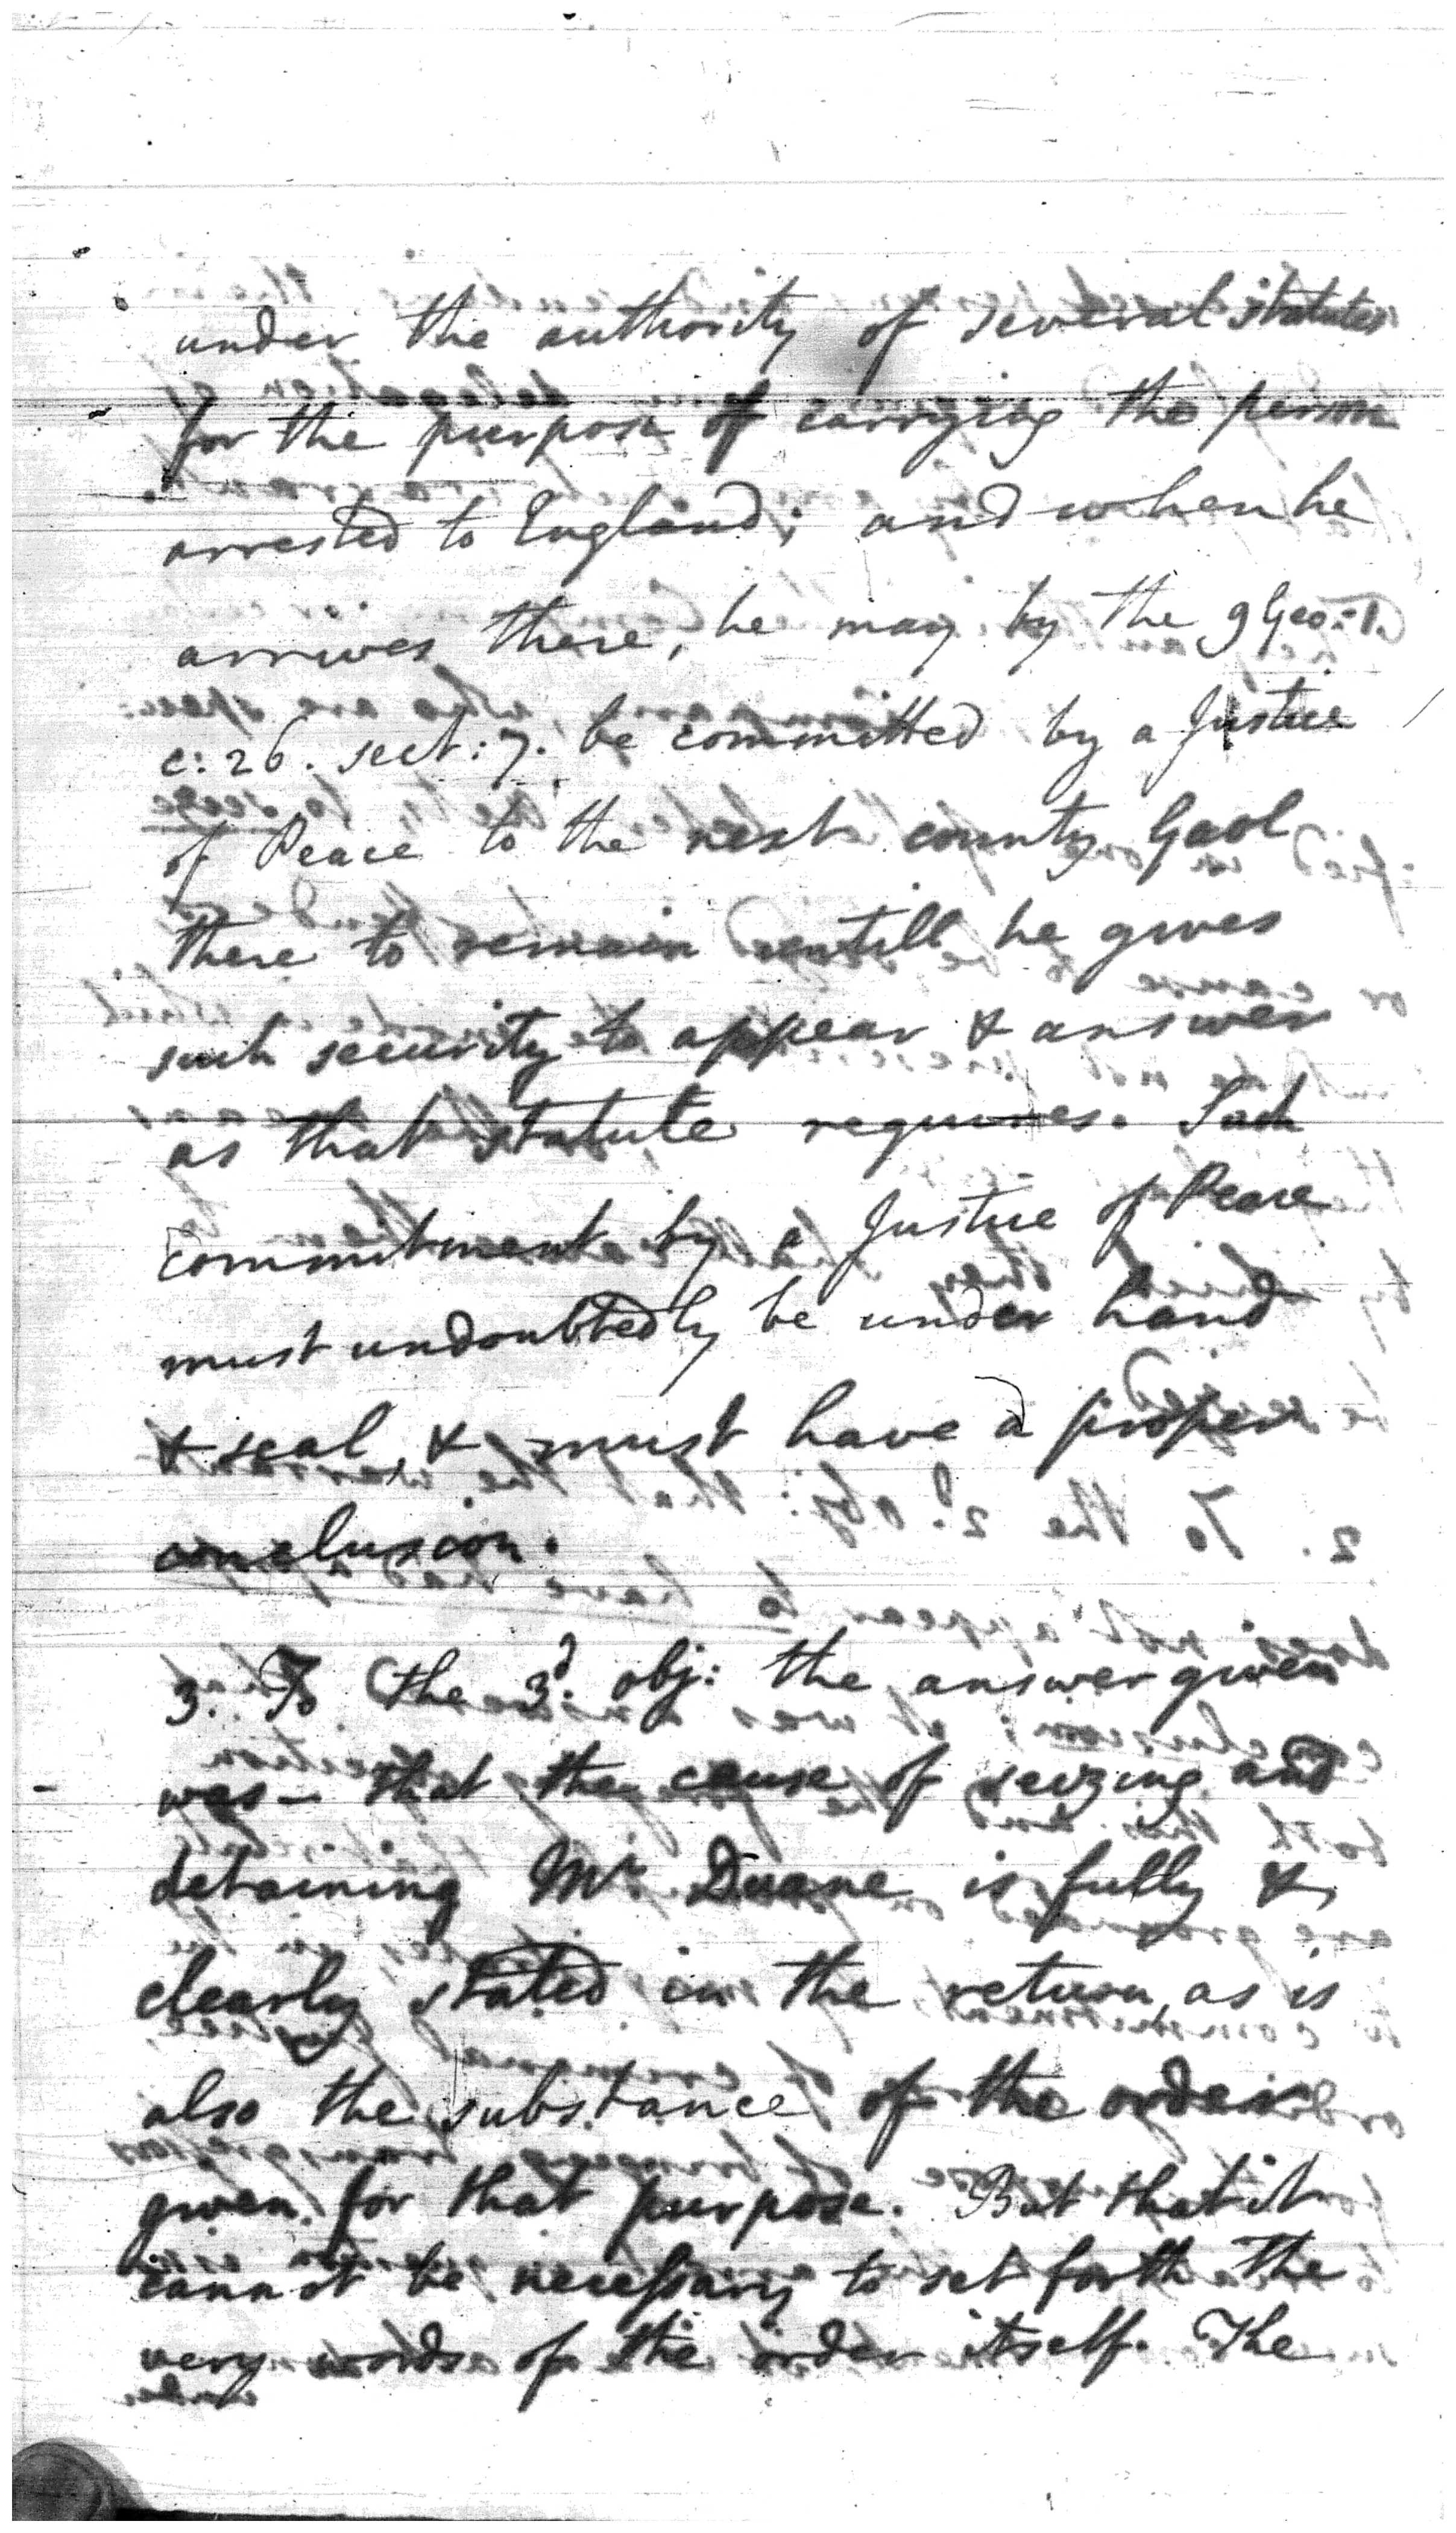 under the authority of several statutes
for the purpose of carrying the person
arrested to England; and when he
arrives there, he may by the 9 Geo: 1.
c: 26. sect: 7. be committed by a Justice
of Peace to the next county Gaol
there to remain untill he gives
such security to appear & answer
as that statute requires. Such
commitment by a Justice of Peace
must undoubtedly be under hand
& seal, & must have a proper
conclusion.
3. To the 3d. obj: the answer given
was — that the cause of seizing and
detaining Mr Duane is fully &
clearly stated in the return, as is
also the substance of the order
given for that purpose. But that it
cannot be necessary to set forth the
very words of the order itself. The